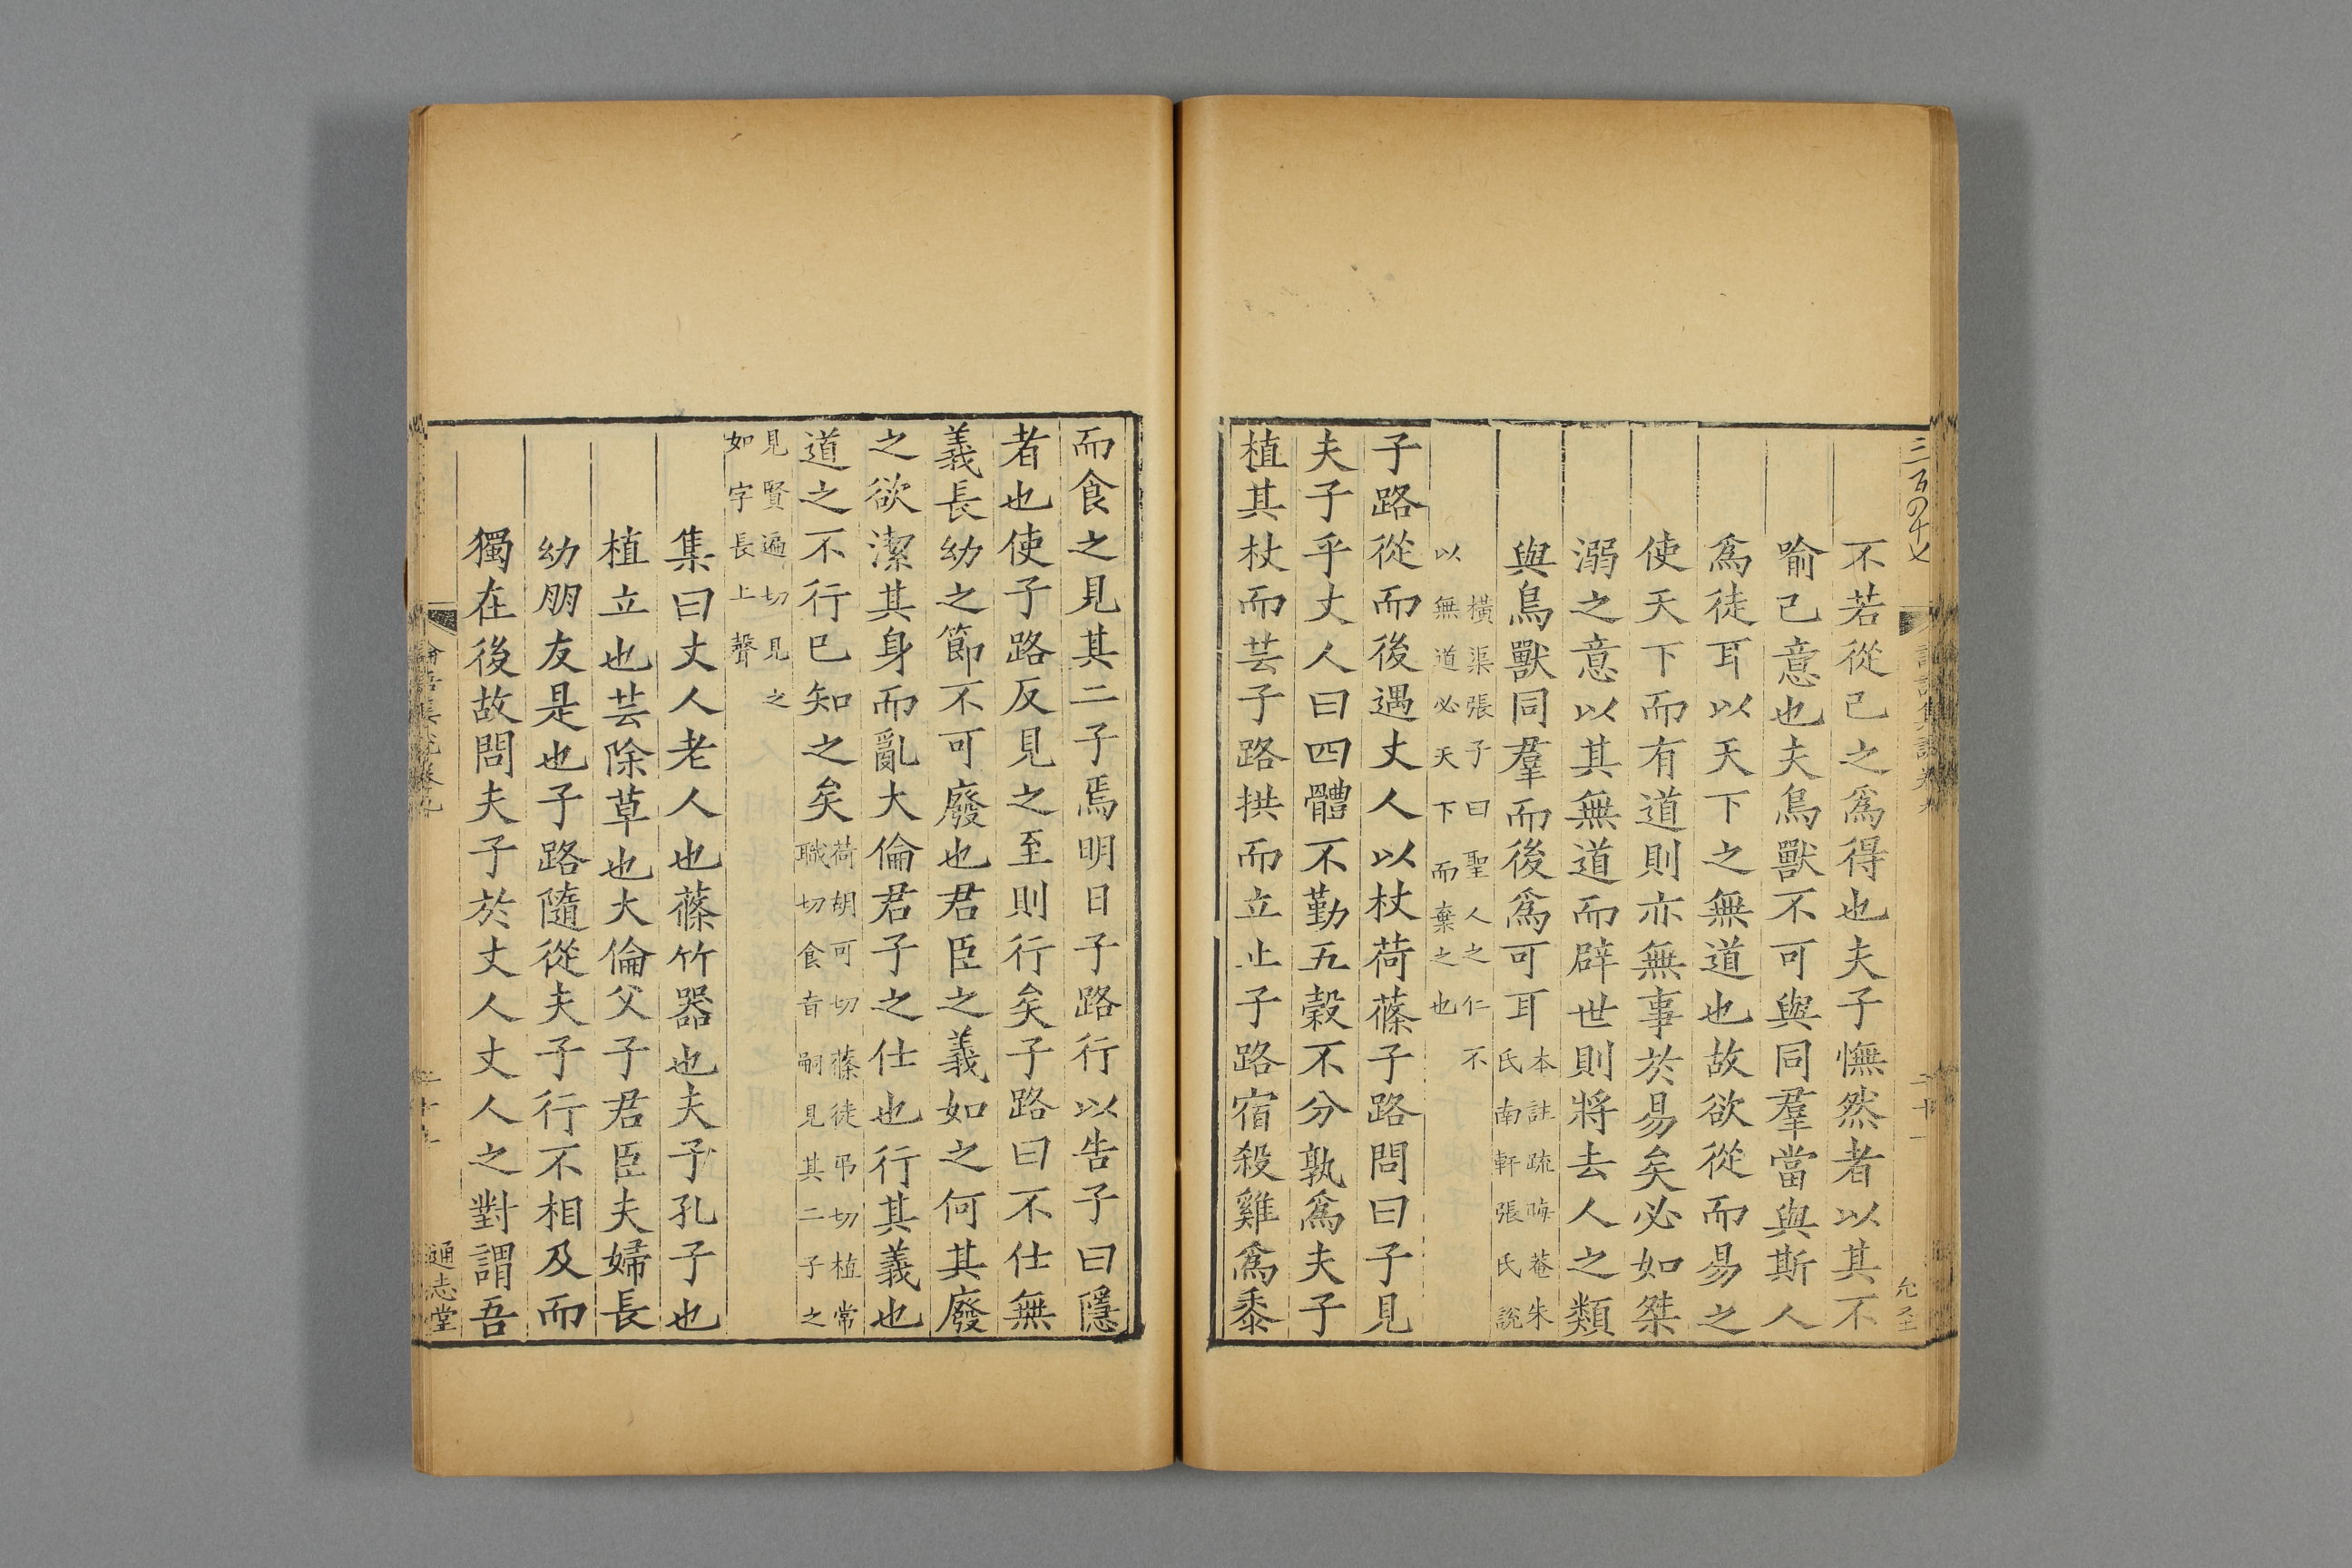 不若從己之爲得也夫子憮然者以其不
喻己意也夫鳥獸不可與同羣當與斯人
爲徒耳以天下之無道也故欲從而易之
使天下而有道則亦無事於易矣必如桀
溺之意以其無道而辟世則將去人之類
與鳥獸同羣而後爲可耳
本註疏晦菴朱
氏南軒張氏說
橫渠張子曰聖人之仁不
以無道必天下而棄之也
子路從而後遇丈人以杖荷蓧子路問曰子見
夫子乎丈人曰四體不勤五穀不分孰爲夫子
植其杖而芸子路拱而立止子路宿殺雞爲黍
而食之見其二子焉明日子路行以告子曰隱
者也使子路反見之至則行矣子路曰不仕無
義長幼之節不可廢也君臣之義如之何其廢
之欲潔其身而亂大倫君子之仕也行其義也
道之不行已知之矣
荷胡可切蓧徒弔切植常
職切食音嗣見其二子之
見賢遍切見之
如字長上聲
集曰丈人老人也蓧竹器也夫子孔子也
植立也芸除草也大倫父子君臣夫婦長
幼朋友是也子路隨從夫子行不相及而
獨在後故問夫子於丈人丈人之對謂吾
通志堂